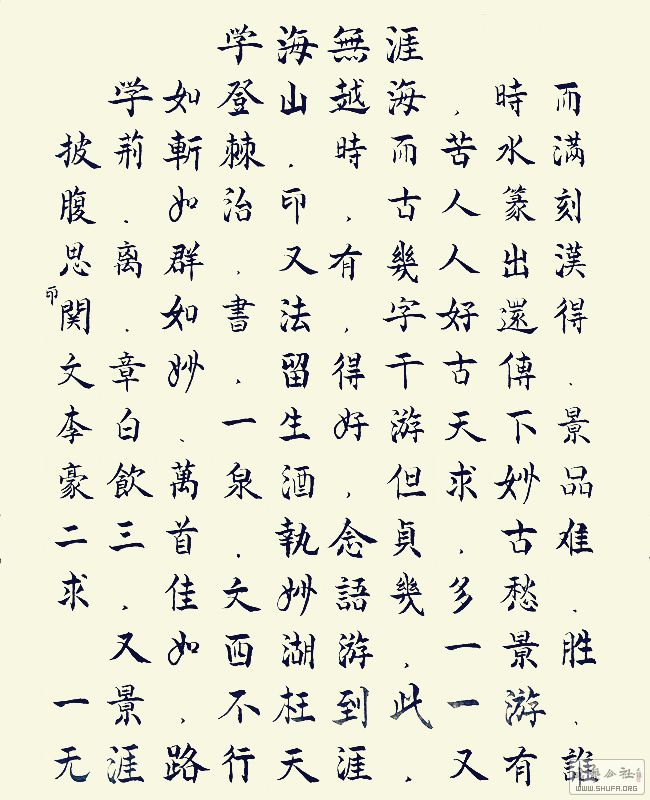 学海無涯
学如登山越海，時而
披荊斬棘．時而苦水满
腹．如治印，古人篆刻
思离群．又有幾人出漢
印
関．如書法，字好還得
文章妙．留得千古傳．
李白、一生好游天下景
豪飲萬泉酒，但求妙品
二三首．執念貞．古难
求．佳文妙語幾多愁．
又如西湖游，一景胜
一景，不枉到此一游．
无涯路行天涯，又有誰
WWW.SHUFA.ORG